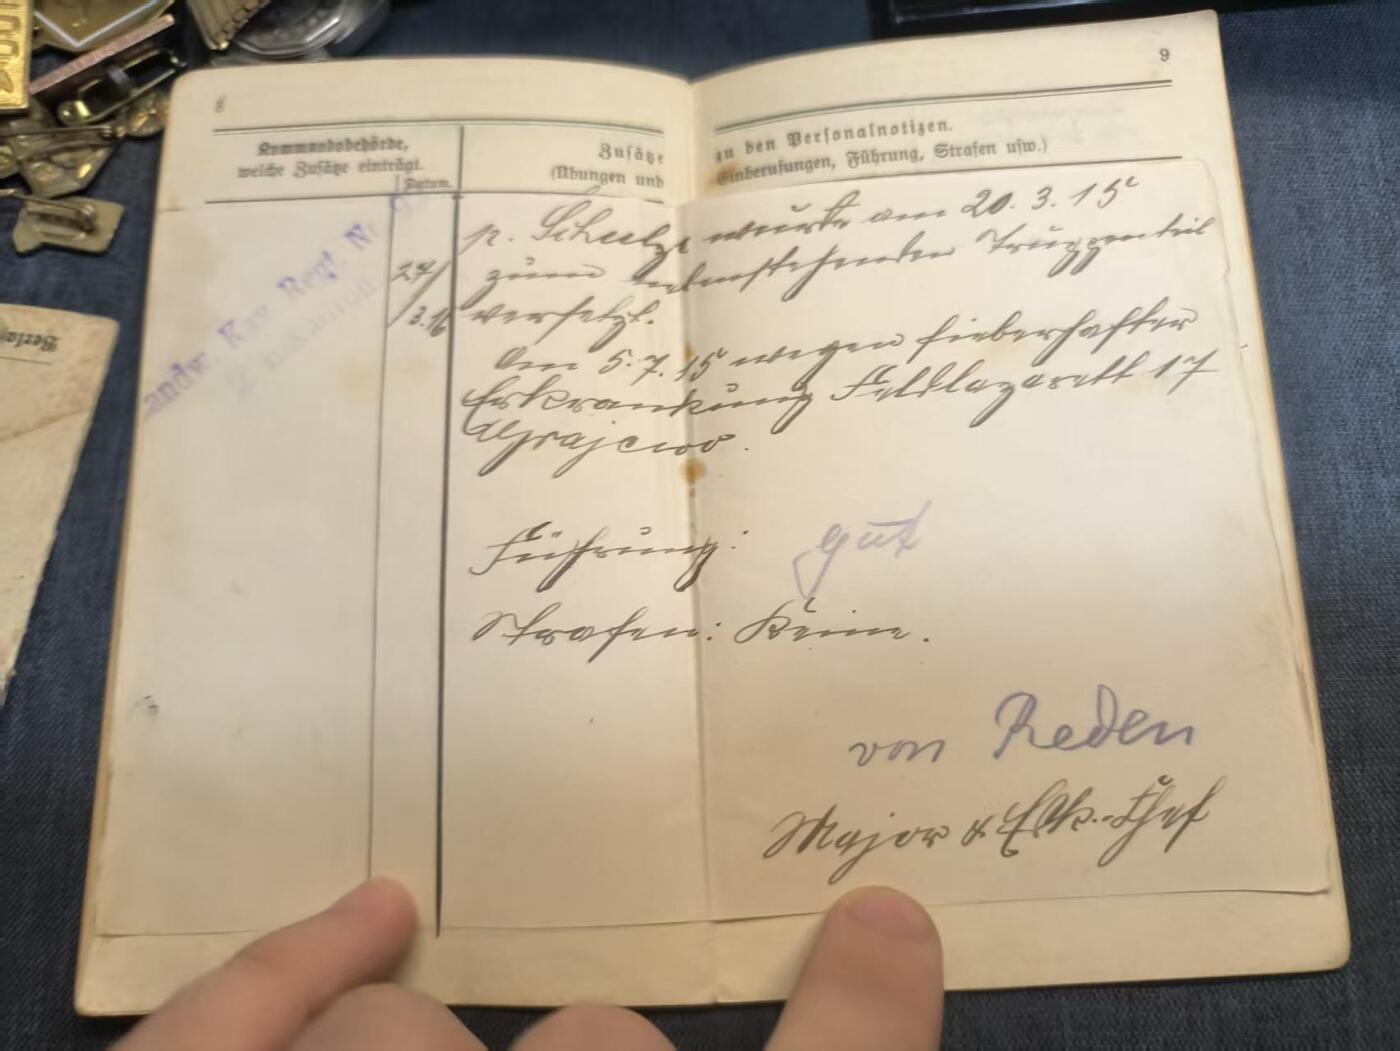 8
9
Kommandobehörde,
welche Zusätze einträgt.
Datum.
Zusätze
(Übungen und
zu den Personalnotizen.
Einberufungen, Führung, Strafen usw.)
andw. Kav. Regt. Nr. 9
2
27/
3.16
p. Schulze wurde am 20. 3. 15
zum nebenstehenden Truppenteil
versetzt.
Am 5. 7. 15 wegen fieberhafter
Erkrankung Feldlazarett 17
Grajewo.
Führung: gut
Strafen: Keine.
von Reden
Major & Esk.-Chef